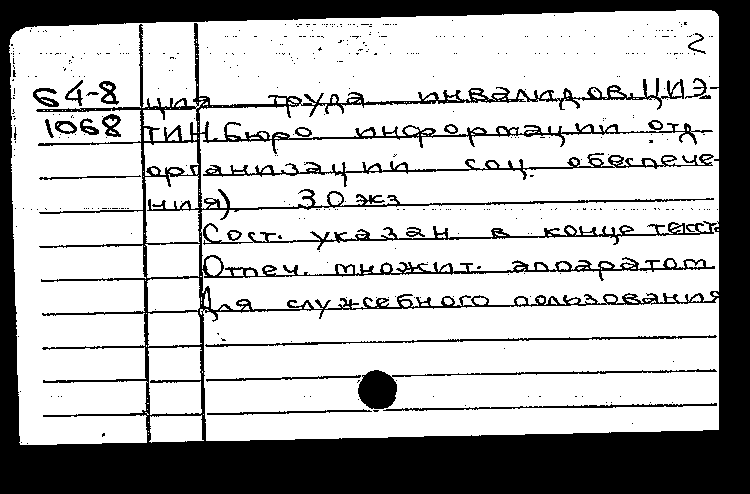 2
64-8 ция труда инвалидов. ЦИЭ-
1068 ТИН. Бюро информации отд.
организации соц. обеспече-
ния). 30 экз
Сост. указан в конце текст
Отпеч. множит. аппаратом
Для служебного пользования